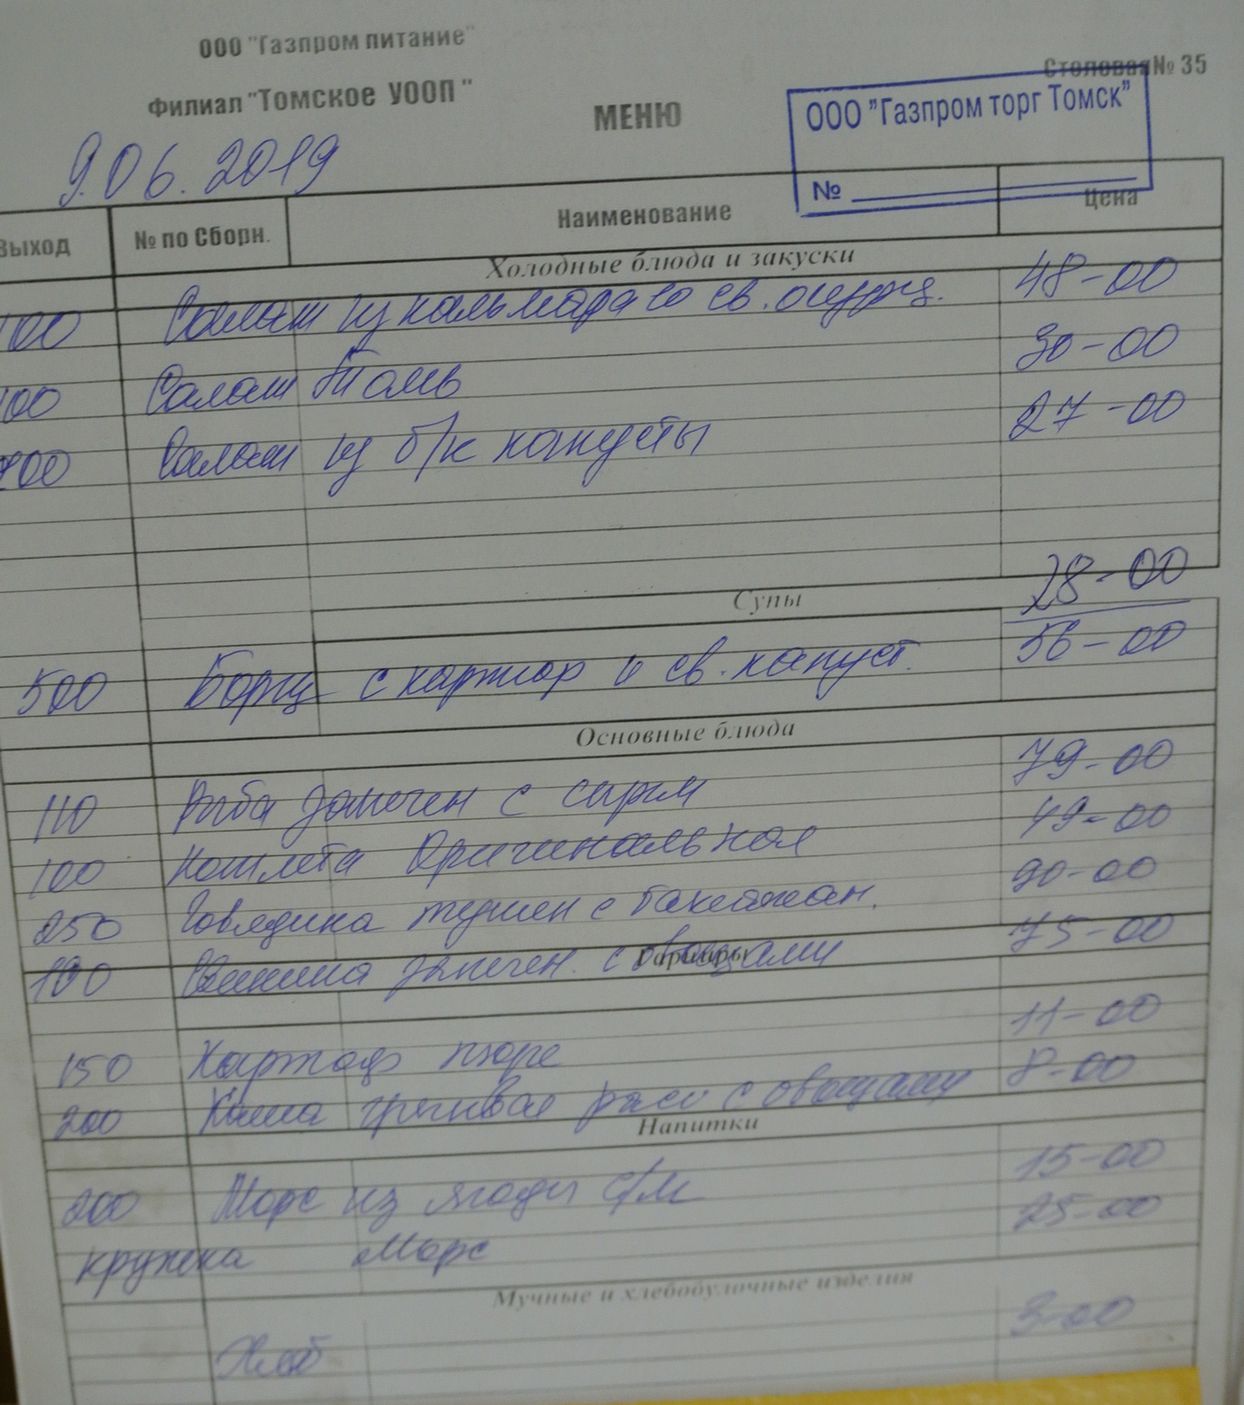 ООО "Газпром питание"
Столовая № 35
Филиал "Томское УООП "
МЕНЮ
ООО "Газпром торг Томск"
№
9.06.2019
Выход № по Сборн. Наименование Цена
Холодные блюда и закуски
100 Салат из кальмара со св. огурц. 48-00
100 Салат 30-00
100 Салат из б/к капусты 27-00
Супы 28-00
500 Борщ с картоф и св. капуст. 56-00
Основные блюда
110 Рыба запечен с сыром 79-00
100 Котлета Оригинальная 49-00
250 Говядина тушен с баклажан. 90-00
100 Свинина запечен. с овощами 75-00
Гарниры
150 Картоф пюре 11-00
200 Каша гречневая расс с овощами 8-00
Напитки
200 Морс из ягоды с/м 15-00
кружка Морс 25-00
Мучные и хлебобулочные изделия
Хлеб 3-00